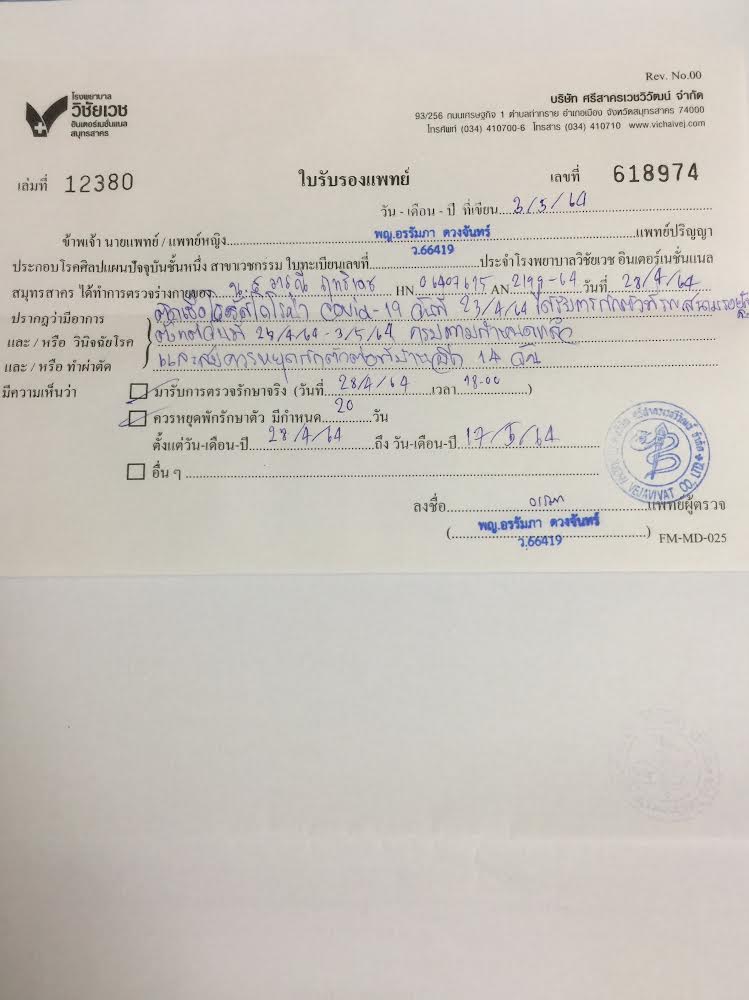 Rev. No.00
โรงพยาบาล
วิชัยเวช
อินเตอร์เนชั่นแนล
สมุทรสาคร
บริษัท ศรีสาครเวชวิวัฒน์ จำกัด
93/256 ถนนเศรษฐกิจ 1 ตำบลท่าทราย อำเภอเมือง จังหวัดสมุทรสาคร 74000
โทรศัพท์ (034) 410700-6 โทรสาร (034) 410710 www.vichaivej.com
เล่มที่ 12380 ใบรับรองแพทย์ เลขที่ 618974
วัน - เดือน - ปี ที่เขียน 3/5/64
ข้าพเจ้า นายแพทย์ / แพทย์หญิง พญ.อรรัมภา ดวงจันทร์ แพทย์ปริญญา
ประกอบโรคศิลปแผนปัจจุบันชั้นหนึ่ง สาขาเวชกรรม ใบทะเบียนเลขที่ ว.66419 ประจำโรงพยาบาลวิชัยเวช อินเตอร์เนชั่นแนล
สมุทรสาคร ได้ทำการตรวจร่างกายของ HN. AN 2199-64 วันที่ 28/4/64
ปรากฏว่ามีอาการ ติดเชื้อไวรัสโคโรน่า Covid-19 วันที่ 23/4/64 ได้รับการกักตัวที่รพ.สนาม
และ / หรือ วินิจฉัยโรค ตั้งแต่วันที่ 3/5/64 ครบตามกำหนดแล้ว
และ / หรือ ทำผ่าตัด และควรหยุดกักตัวต่อที่บ้านอีก 14 วัน
มีความเห็นว่า มารับการตรวจรักษาจริง (วันที่ 28/4/64 เวลา 18.00 )
ควรหยุดพักรักษาตัว มีกำหนด 20 วัน
ตั้งแต่วัน-เดือน-ปี 28/4/64 ถึง วัน-เดือน-ปี 17/5/64
อื่น ๆ
VEJAVIVAT CO.,LTD.
ลงชื่อ แพทย์ผู้ตรวจ
( พญ.อรรัมภา ดวงจันทร์ ) FM-MD-025
ว.66419